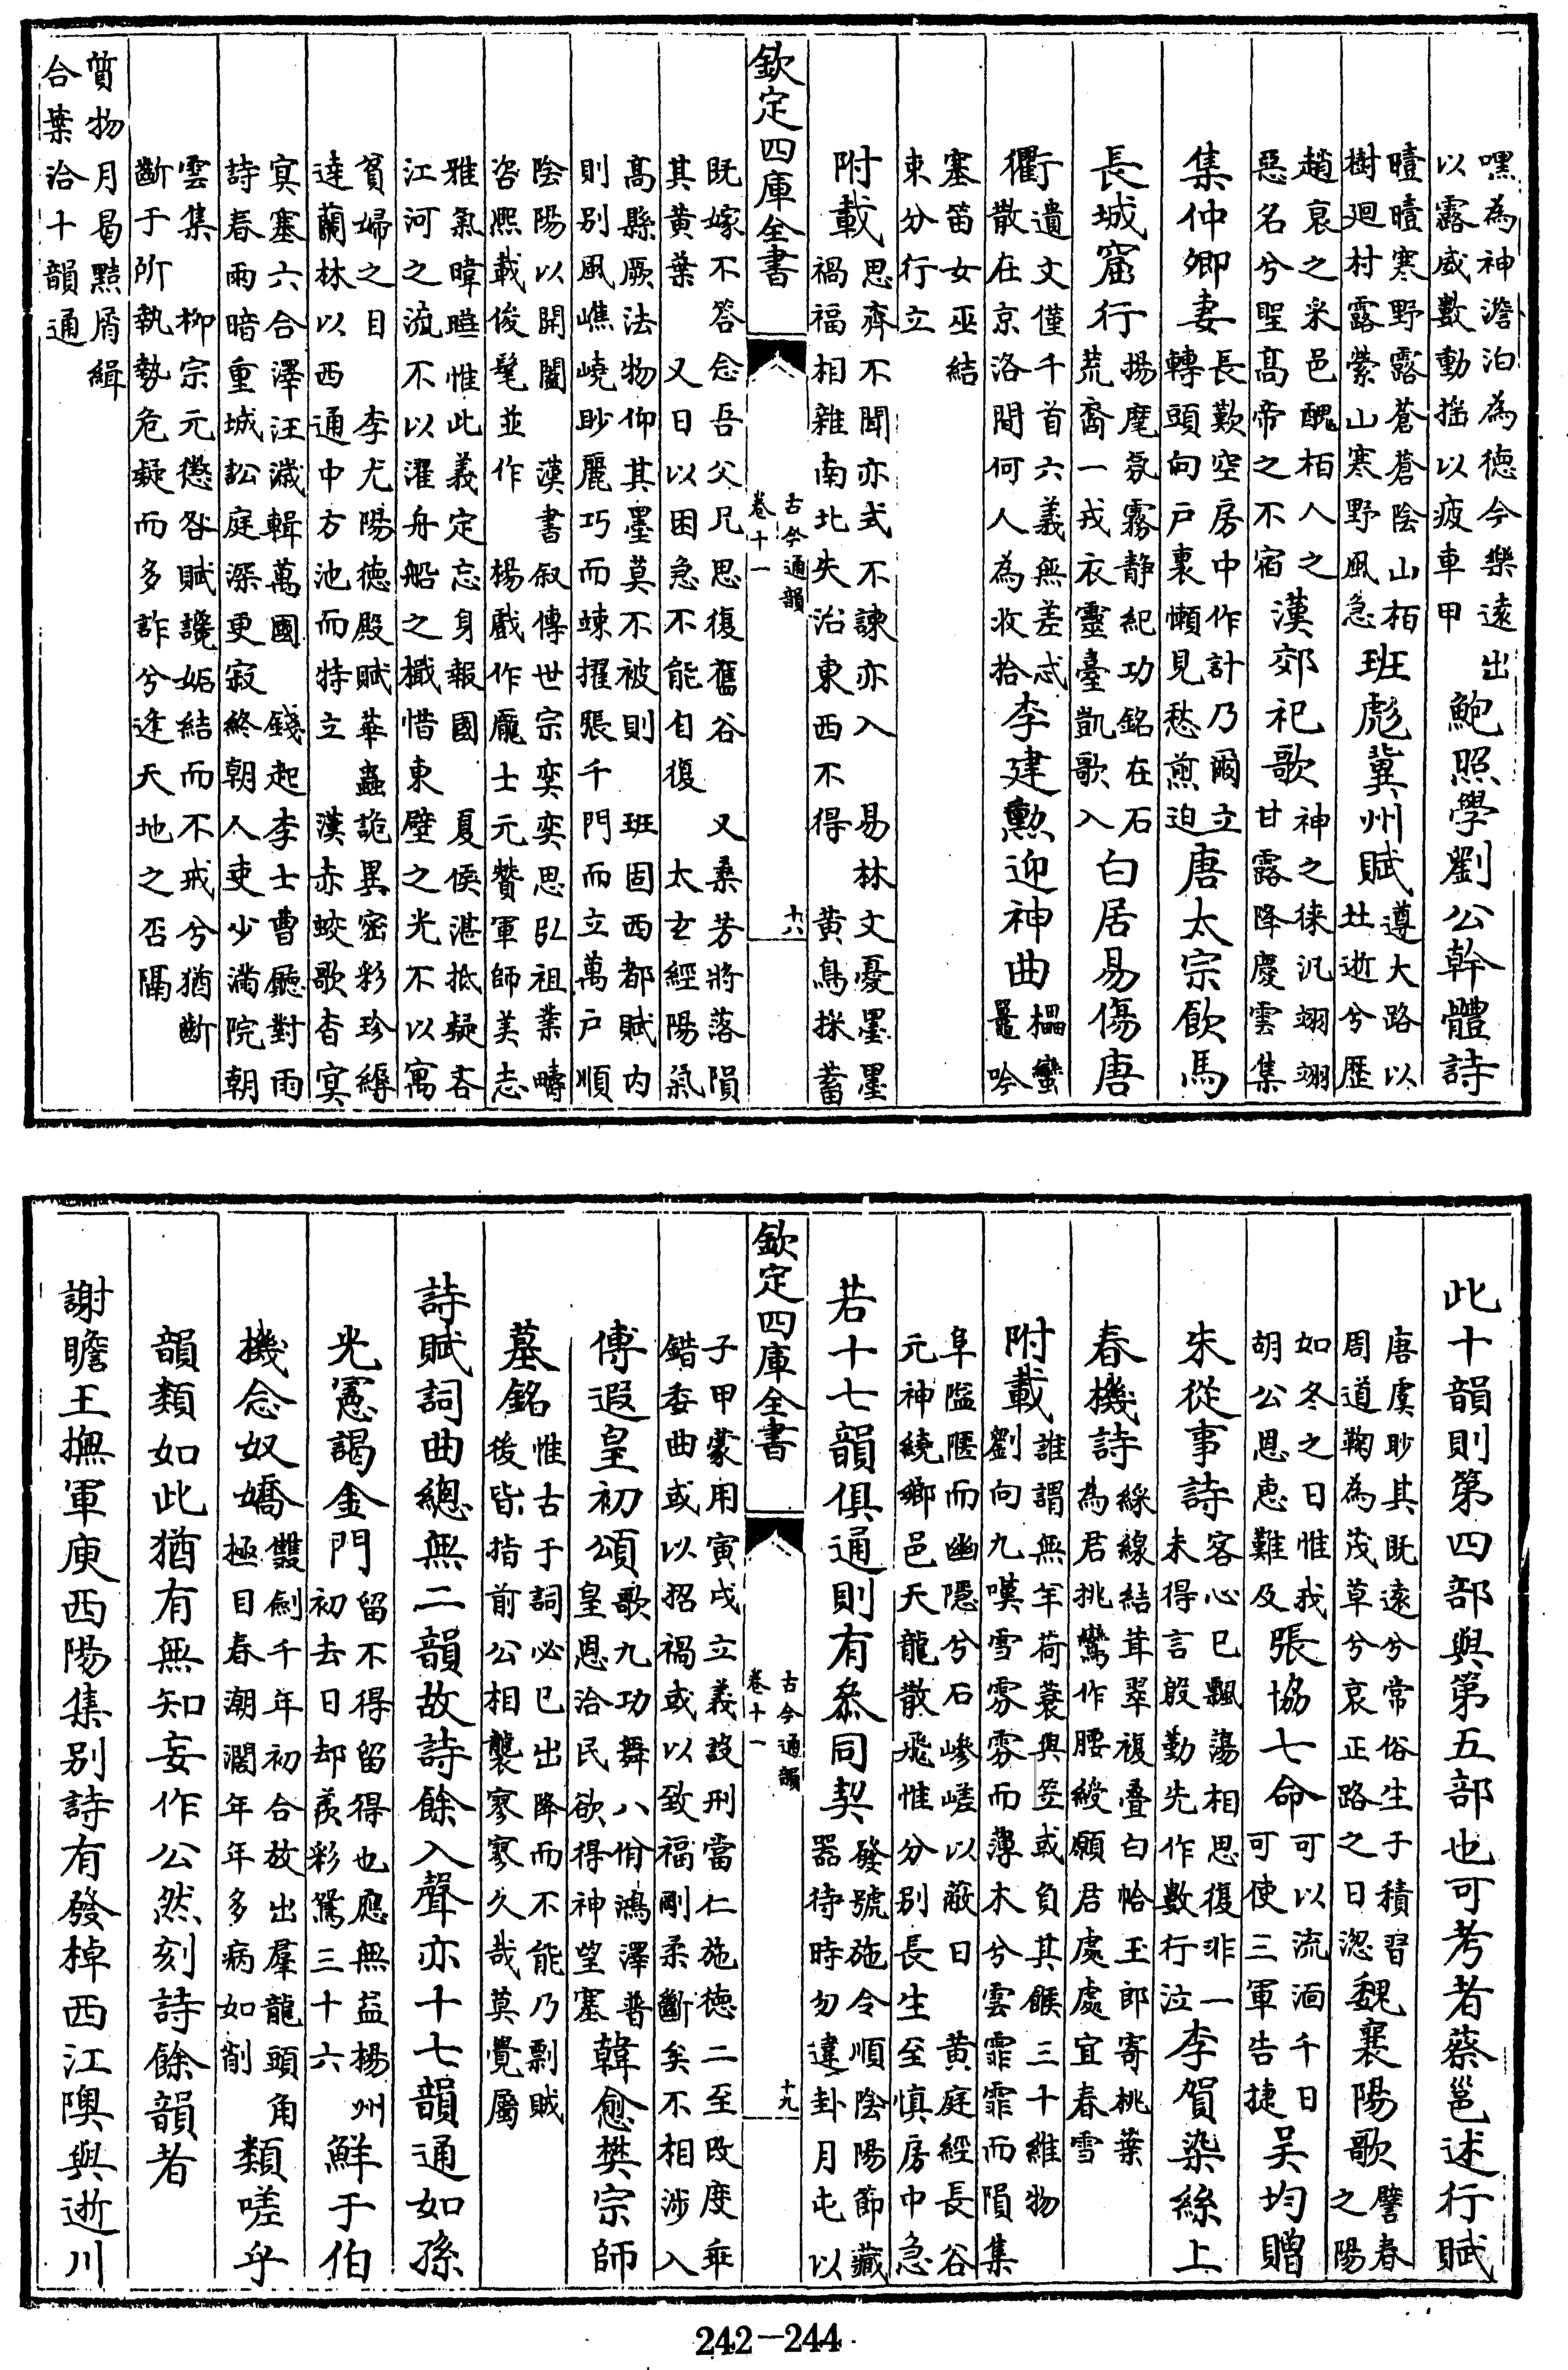 嘿為神澹泊為德今樂遠出
以露威數動揺以疲車甲
鮑照學劉公幹體詩
曀曀寒野露蒼蒼陰山栢
樹廻村露縈山寒野風急
班彪冀州賦
遵大路以
北逝兮歷
趙衰之采邑醜栢人之
惡名兮聖髙帝之不宿
漢郊祀歌
神之徠汎翊翊
甘露降慶雲集
集仲卿妻
長歎空房中作計乃爾立
轉頭向戸裏懶見愁煎迫
唐太宗飲馬
長城窟行
揚麾氛霧静紀功銘在石
荒裔一戎衣靈臺凱歌入
白居易傷唐
衢
遺文僅千首六義無差忒
散在京洛間何人為收拾
李建勲迎神曲
櫑蠻
鼍吟
塞笛女巫結
束分行立
附載
思齊不聞亦式不諫亦入
易林文憂墨墨
禍福相雜南北失治東西不得
黄鳥採蓄
欽定四庫全書
古今通韻
卷十一
十八
既嫁不答念吾父兄思復舊谷
又桑芳將落隕
其黄葉
又日以困急不能自復
太𤣥經陽氣
髙縣厥法物仰其墨莫不被則
班固西都賦内
則别風嶕嶢眇麗巧而竦擢張千門而立萬戸順
隂陽以開闔
漢書叙傳世宗奕奕思弘祖業疇
咨熙載俊髦並作
楊戲作龎士元贊軍師美志
雅氣暐曄惟此義定忘身報國
夏侯湛抵疑吝
江河之流不以濯舟船之檝惜東壁之光不以寓
貧婦之目
李尤陽德殿賦華蟲詭異密彩珍縟
逹蘭林以西通中方池而特立
漢赤蛟歌杳冥
寞塞六合澤汪濊輯萬國
錢起李士曹廳對雨
詩春雨暗重城訟庭深更寂終朝人吏少滿院朝
雲集
柳宗元懲咎賦讒妬結而不戒兮猶斷
斷于所執勢危疑而多詐兮逢天地之否隔
質物月曷黠屑緝
合葉洽十韻通
此十韻則第四部與第五部也可考者蔡邕述行賦
唐虞眇其既遠兮常俗生于積習
周道鞠為茂草兮哀正路之日㳷
魏襄陽歌
譬春
之陽
如冬之日惟我
胡公恩惠難及
張協七命
可以流湎千日
可使三軍告捷
吴均贈
朱從事詩
客心已飄蕩相思復非一
未得言殷勤先作數行泣
李賀染絲上
春機詩
綵線結茸翠複疊白帢玉郎寄桃葉
為君挑鸞作腰綬願君處處宜春雪
附載
誰謂無羊荷蓑與笠或負其餱三十維物
劉向九嘆雪雰雰而薄木兮雲霏霏而隕集
阜隘隁而幽隱兮石嵾嵯以蔽日
黄庭經長谷
元神繞鄉邑天龍散飛惟分别長生至慎房中急
若十七韻俱通則有叅同契
發號施令順隂陽節藏
器待時勿違卦月屯以
欽定四庫全書
古今通韻
卷十一
十九
子甲蒙用寅戌立義設刑當仁施德二至改度乖
錯委曲或以招禍或以致福剛柔斷矣不相涉入
傅遐皇初頌
歌九功舞八佾鴻澤普
皇恩洽民欲得神望塞
韓愈樊宗師
墓銘
惟古于詞必已出降而不能乃剽賊
後皆指前公相襲寥寥久哉莫覺屬
詩賦詞曲總無二韻故詩餘入聲亦十七韻通如孫
光憲謁金門
留不得留得也應無益楊州
初去日却羨彩鴛三十六
鮮于伯
機念奴嬌
雙劍千年初合放出羣龍頭角
極目春潮濶年年多病如削
類嗟乎
韻類如此猶有無知妄作公然刻詩餘韻者
謝瞻王撫軍庾西陽集别詩有發棹西江隩與逝川
242—244